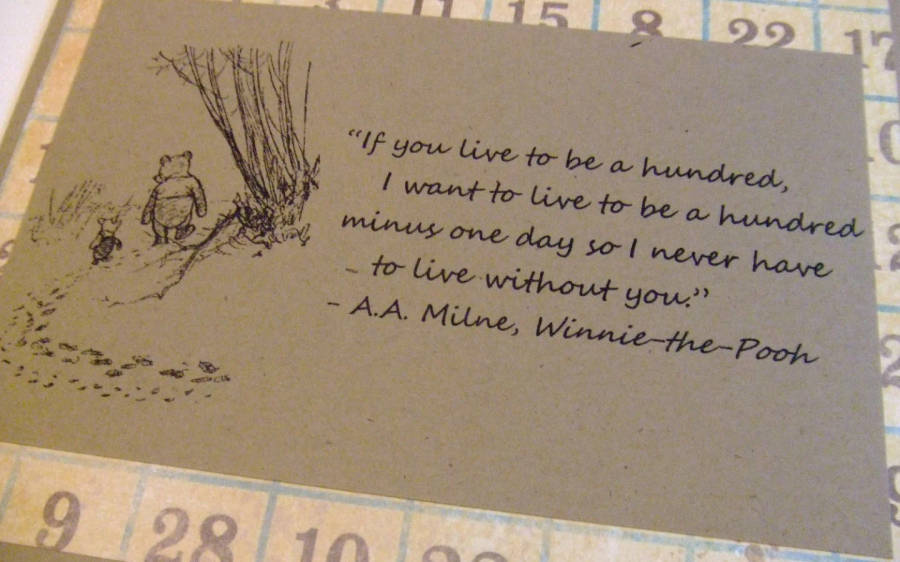 3 11 15 8 22 17
“If you live to be a hundred,
I want to live to be a hundred
minus one day so I never have
to live without you.”
- A.A. Milne, Winnie-the-Pooh
9 28 10